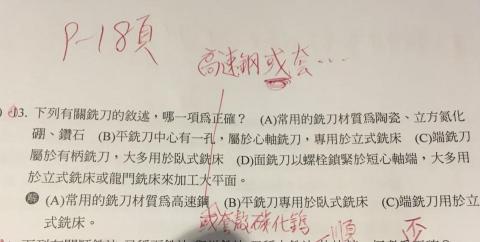 P-18頁
高速鋼或套…
13. 下列有關銑刀的敘述，哪一項爲正確？ (A)常用的銑刀材質爲陶瓷、立方氮化
硼、鑽石 (B)平銑刀中心有一孔，屬於心軸銑刀，專用於立式銑床 (C)端銑刀
屬於有柄銑刀，大多用於臥式銑床 (D)面銑刀以螺栓鎖緊於短心軸端，大多用
於立式銑床或龍門銑床來加工大平面。
解 (A)常用的銑刀材質爲高速鋼 (B)平銑刀專用於臥式銑床 (C)端銑刀用於立
式銑床。
或套散碳化鎢
順 否